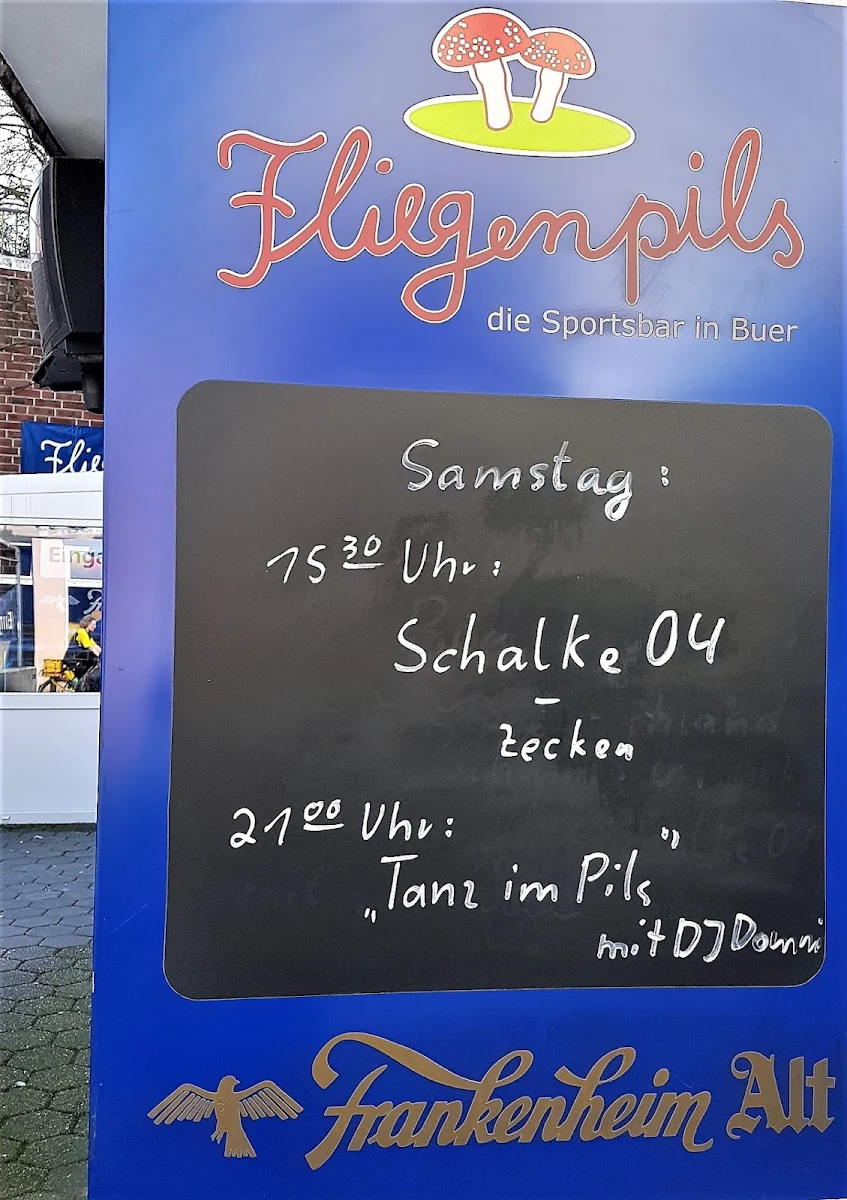 Fliegenpils
die Sportsbar in Buer
Samstag :
15 30 Uhr :
Schalke 04
-
Zecken
21 00 Uhr :
„Tanz im Pils"
mit DJ Domni
Frankenheim Alt
Flie
Einga